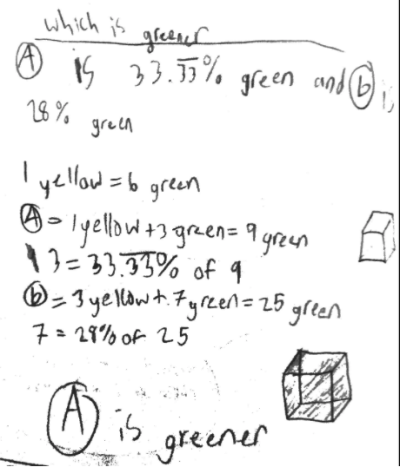 which is greener
Ⓐ is 33.3̅3̅% green and ⓑ is
28% green
1 yellow = 6 green
Ⓐ = 1 yellow + 3 green = 9 green
3 = 33.3̅3̅% of 9
ⓑ = 3 yellow + 7 green = 25 green
7 = 28% of 25
Ⓐ is greener